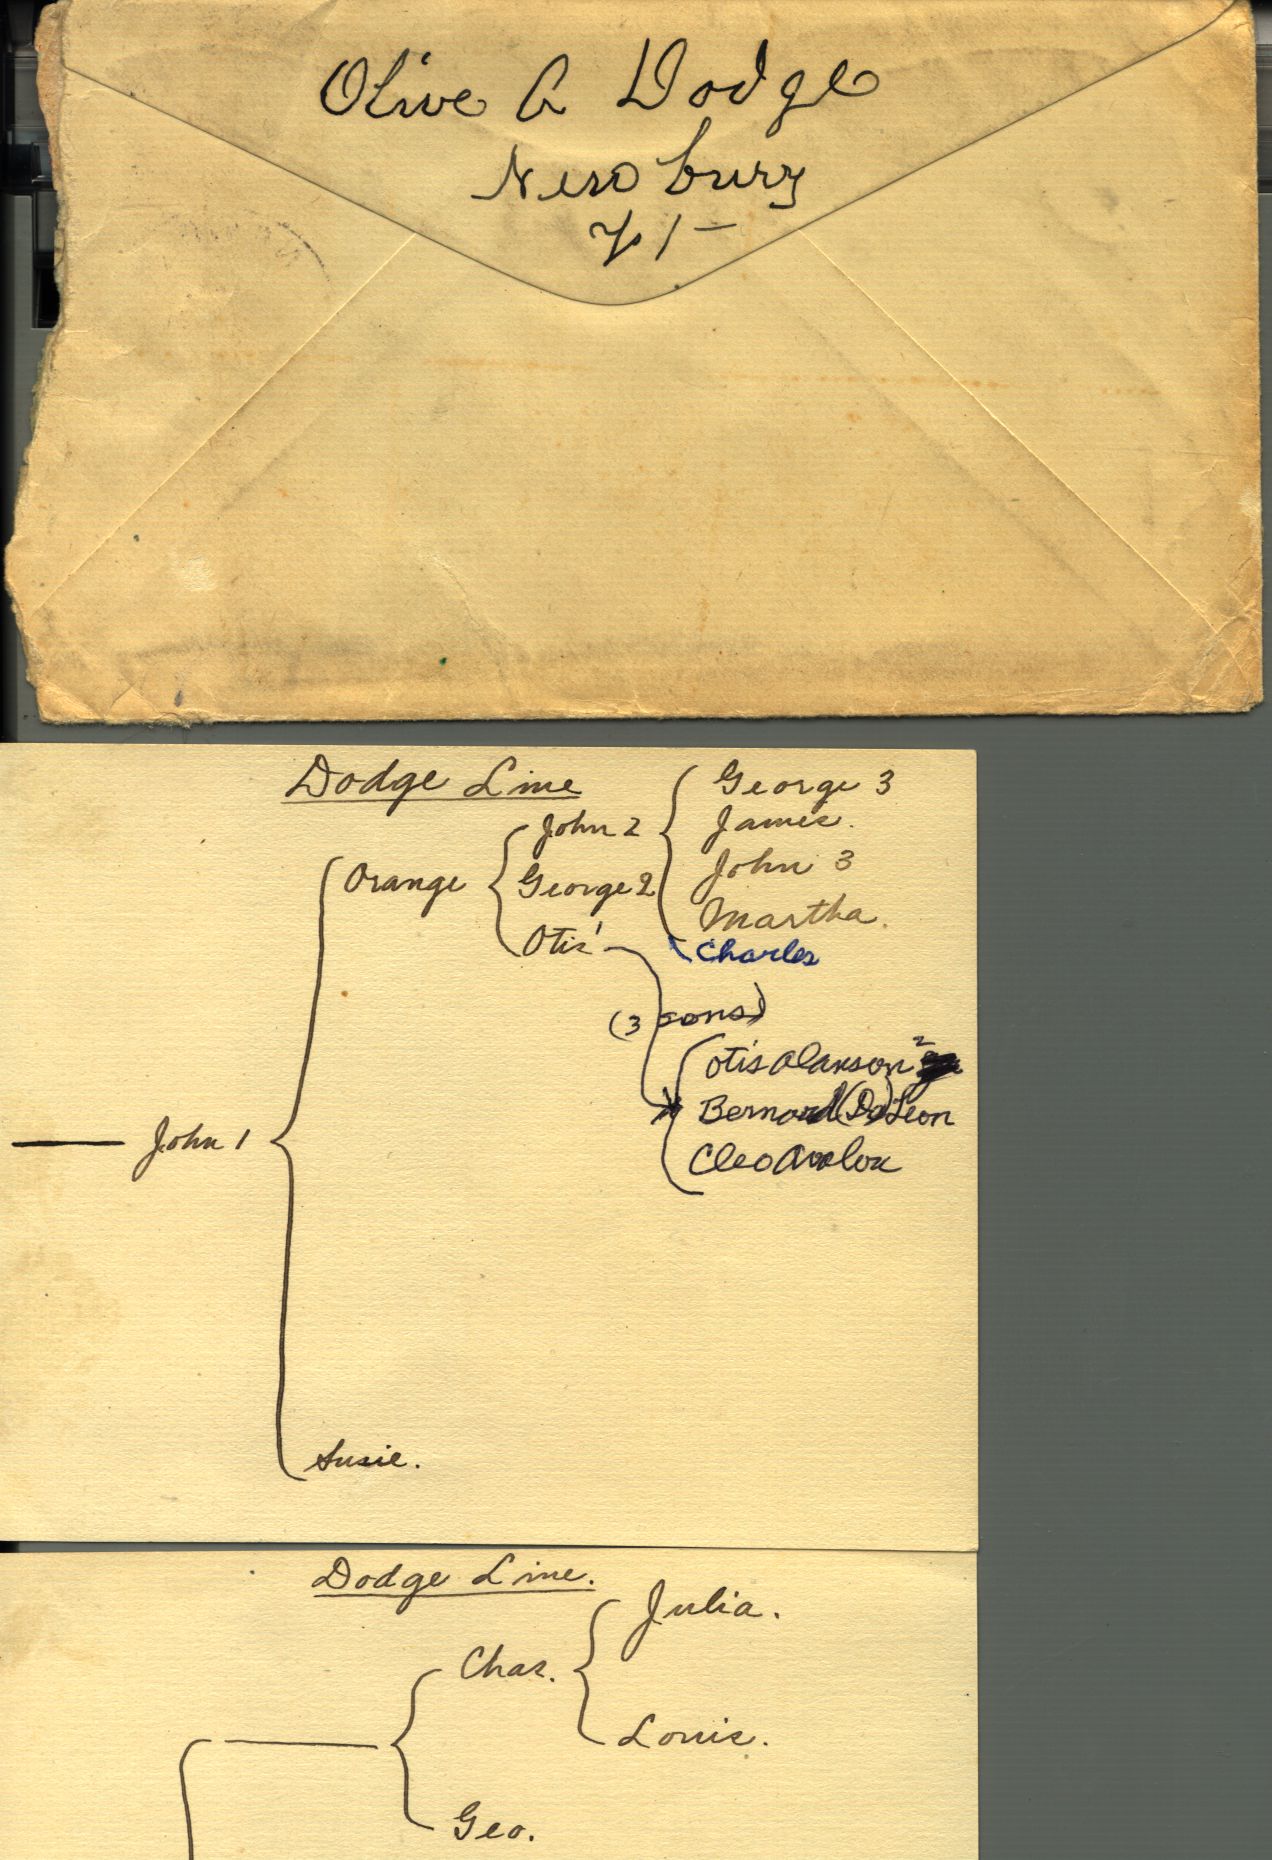 Olive A Dodge
Newbury
Vt -
Dodge Line
George 3
John 2
James.
Orange
George 2
John 3
Martha.
Otis 1
Charles
(3 sons)
Otis Alanson 2
John 1
Bernard (De) Leon
Cleo
Susie.
Dodge Line.
Julia.
Chas.
Louis.
Geo.